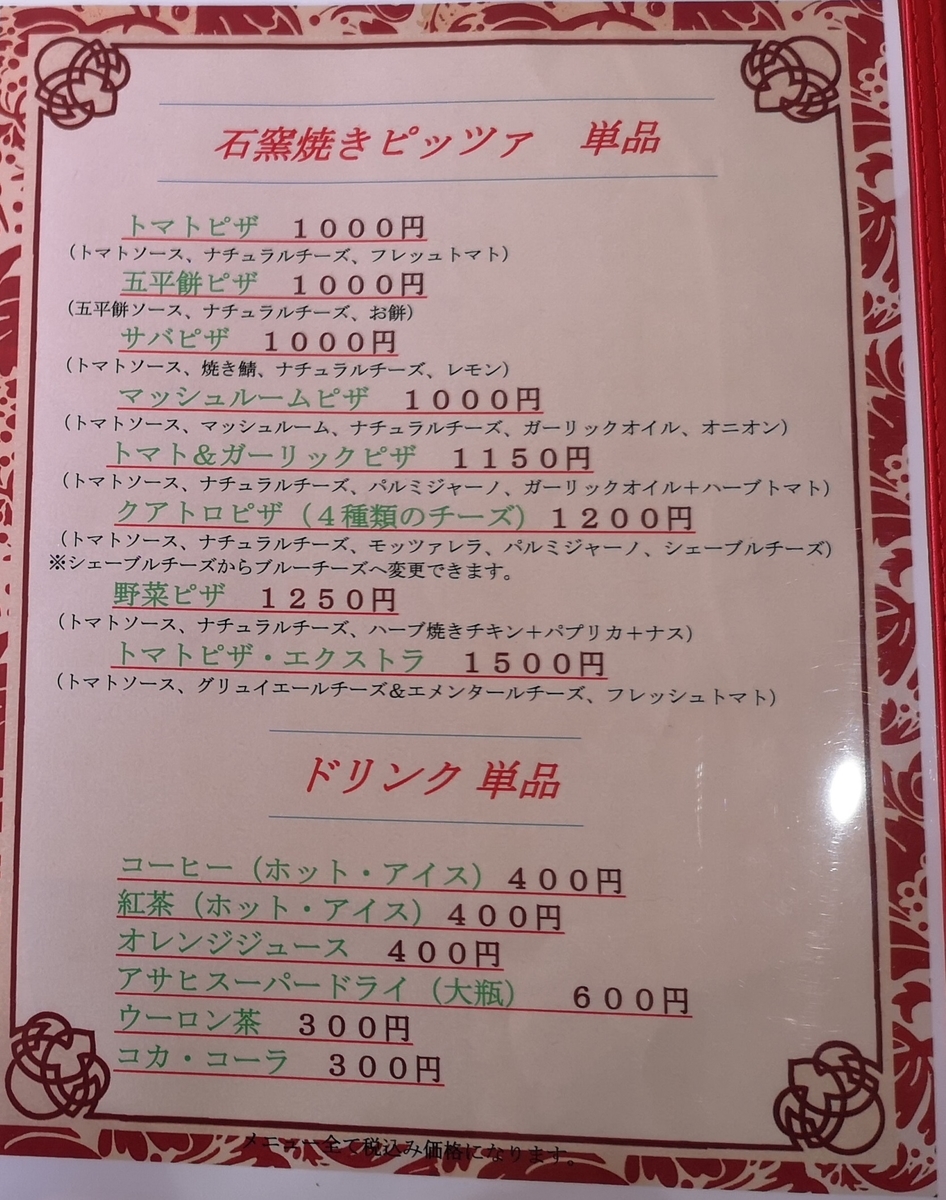 石窯焼きピッツァ　単品
トマトピザ　１０００円
（トマトソース、ナチュラルチーズ、フレッュトマト）
五平餅ピザ　１０００円
（五平餅ソース、ナチュラルチーズ、お餅）
サバピザ　１０００円
（トマトソース、焼き鯖、ナチュラルチーズ、レモン）
マッシュルームピザ　１０００円
（トマトソース、マッシュルーム、ナチュラルチーズ、ガーリックオイル、オニオン）
トマト＆ガーリックピザ　１１５０円
（トマトソース、ナチュラルチーズ、パルミジャーノ、ガーリックオイル＋ハーブトマト）
クアトロピザ（４種類のチーズ）１２００円
（トマトソース、ナチュラルチーズ、モッツァレラ、パルミジャーノ、シェーブルチーズ）
※シェーブルチーズからブルーチーズへ変更できます。
野菜ピザ　１２５０円
（トマトソース、ナチュラルチーズ、ハーブ焼きチキン＋パプリカ＋ナス）
トマトピザ・エクストラ　１５００円
（トマトソース、グリュイエールチーズ＆エメンタールチーズ、フレッシュトマト）
ドリンク 単品
コーヒー（ホット・アイス）４００円
紅茶（ホット・アイス）４００円
オレンジジュース　４００円
アサヒスーパードライ（大瓶）　６００円
ウーロン茶　３００円
コカ・コーラ　３００円
メニュー全て税込み価格になります。